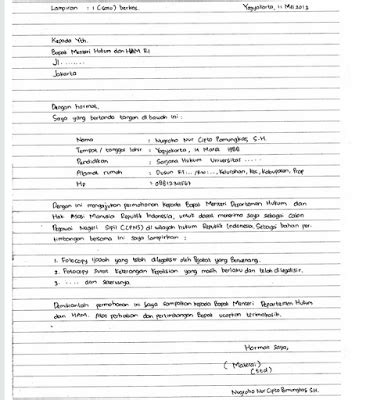 Lampiran : 1 (satu) berkas. Yogyakarta, 11 Mei 2013
Kepada Yth.
Bapak Menteri Hukum dan HAM RI
Jl. .......
Jakarta
Dengan hormat,
Saya yang bertanda tangan di bawah ini :
Nama : Nugroho Nur Cipto Pamungkas, S.H.
Tempat / tanggal lahir : Yogyakarta, 14 Maret 1988
Pendidikan : Sarjana Hukum Universitas .....
Alamat rumah : Dusun RT.../RW..., Kelurahan, Kec, Kabupaten, Prop
Hp :
Dengan ini mengajukan permohonan kepada Bapak Menteri Departemen Hukum dan
Hak Asasi Manusia Republik Indonesia, untuk dapat menerima saya sebagai calon
Pegawai Negeri Sipil (CPNS) di wilayah hukum Republik Indonesia. Sebagai bahan per-
timbangan bersama ini saya lampirkan :
1. Fotocopy Ijazah yang telah dilegalisir oleh Pejabat yang Berwenang.
2. Fotocopy Surat Keterangan Kepolisian yang masih berlaku dan telah dilegalisir.
3. ..... dan seterusnya.
Demikianlah permohonan ini saya sampaikan kepada Bapak Menteri Departemen Hukum
dan HAM. Atas perhatian dan pertimbangan Bapak ucapkan terimakasih.
Hormat Saya,
(Materai)
(ttd)
Nugroho Nur Cipto Pamungkas S.H.